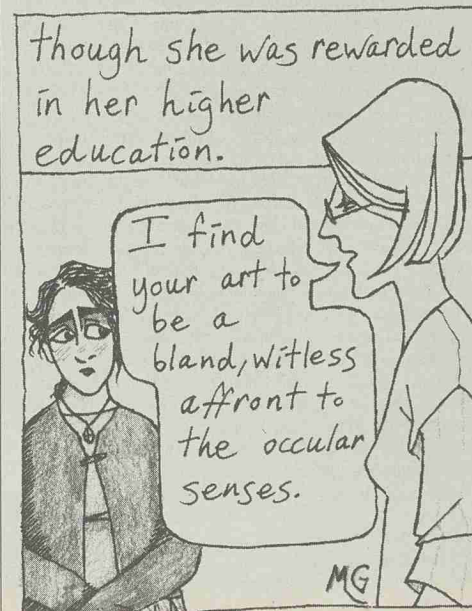 though she was rewarded
in her higher
education.
I find
your art to
be a
bland, witless
affront to
the occular
senses.
MG